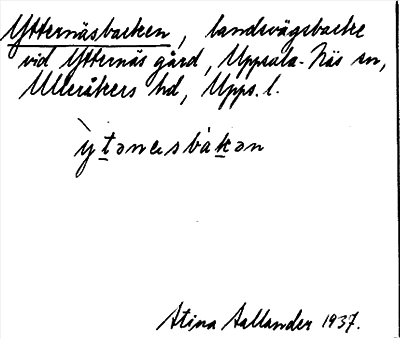 Ytternäsbacken, landsvägsbacke
vid Ytternäs gård, Uppsala-Näs sn,
Ulleråkers hd, Upps. l.
ỳtənɛsbàkən
Stina Aallander 1937.